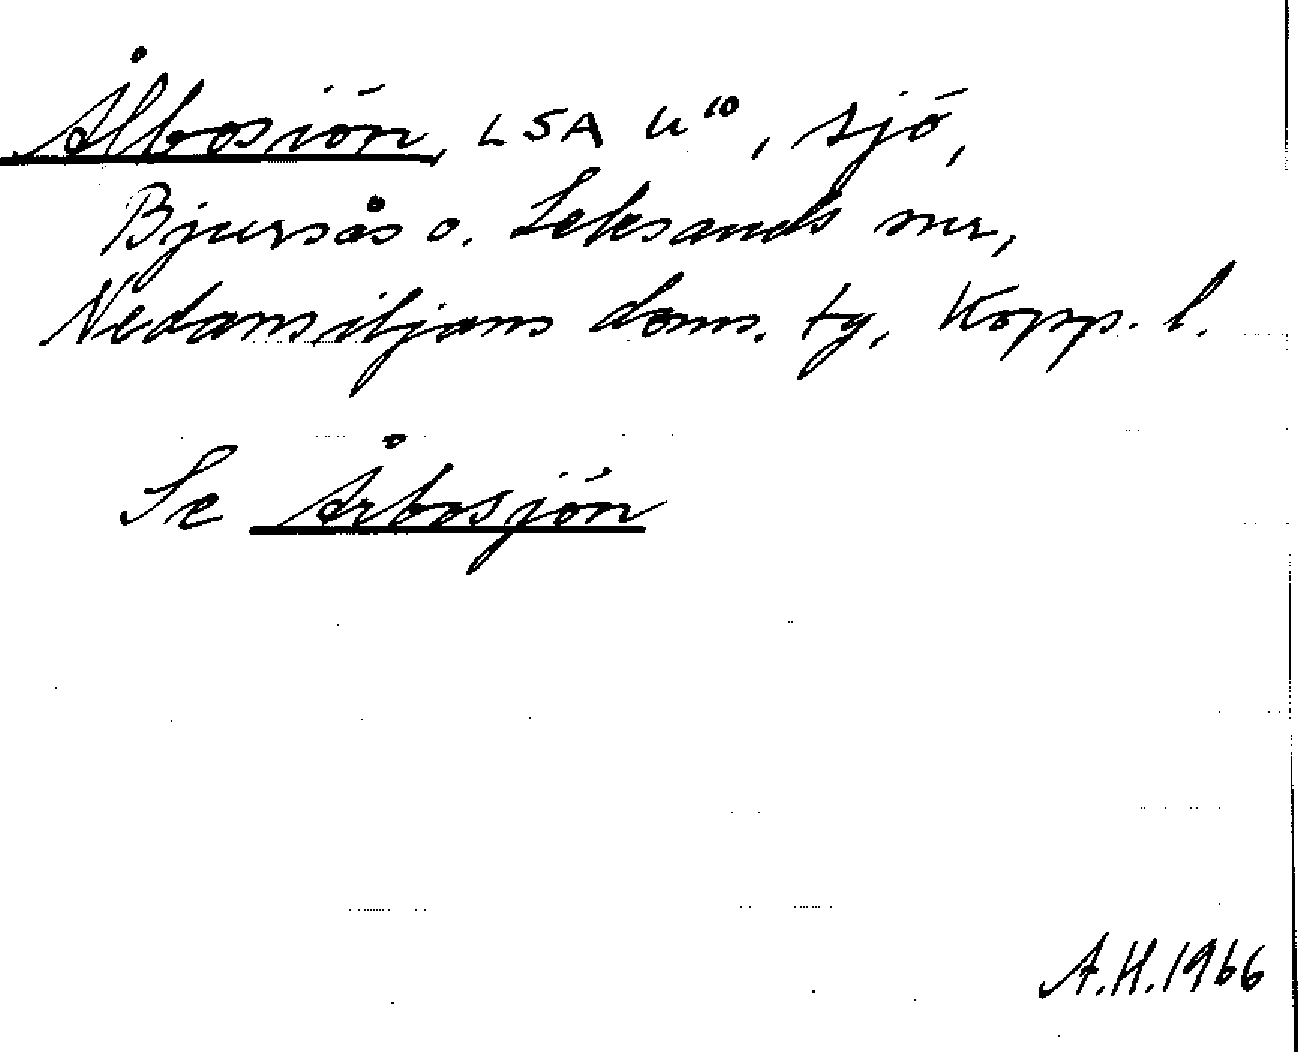 Ålbosiön, LSA U¹⁰, sjö,
Bjursås o. Leksands snr,
Nedansiljans doms. tg, Kopp. l.
Se Årbosjön
A.H.1966